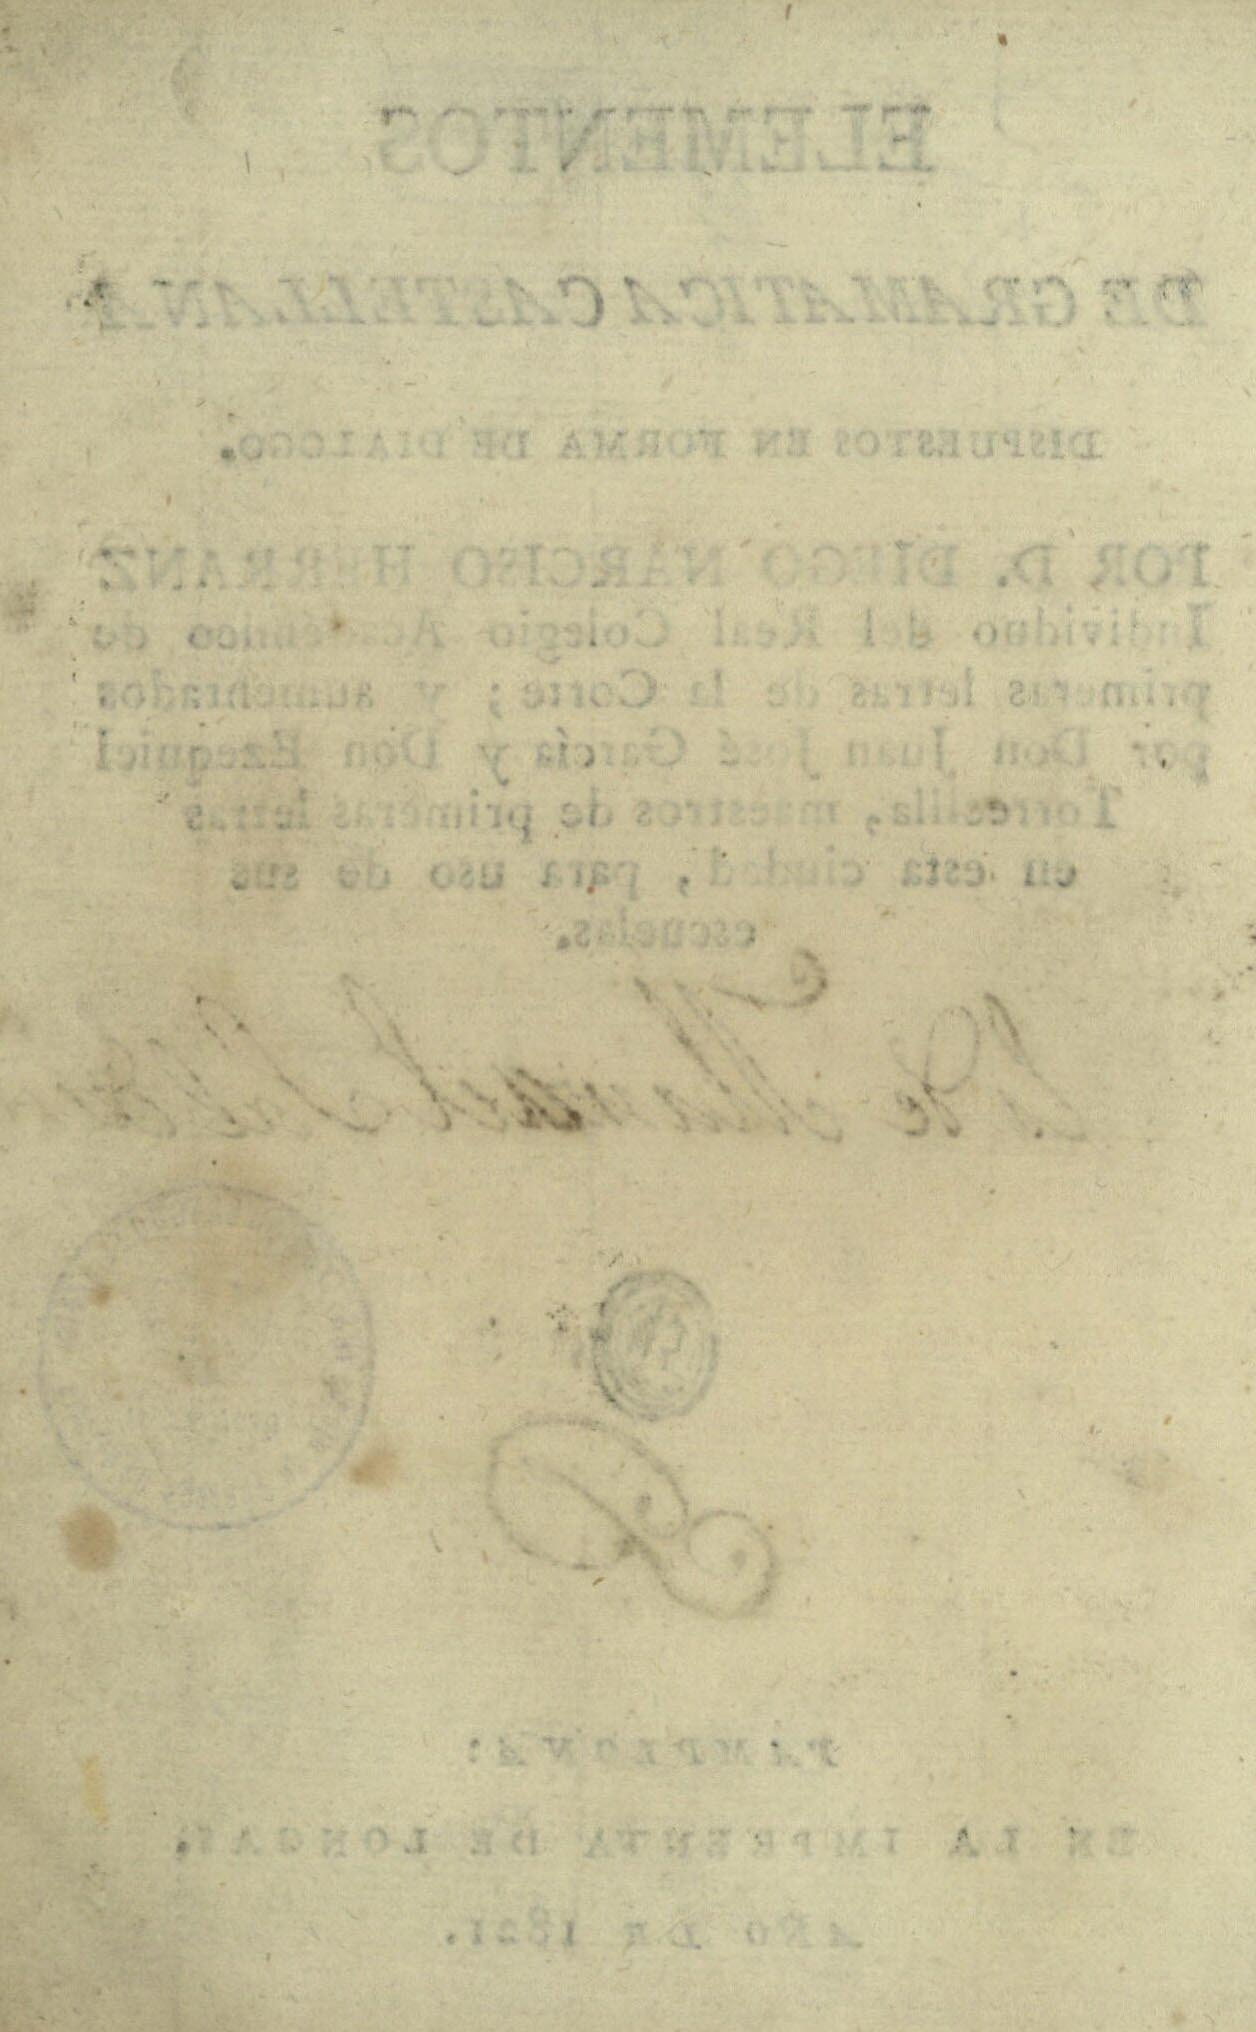 ELEMENTOS
DE GRAMATICA CASTELLANA
DISPUESTOS EN FORMA DE DIALOGO.
POR D. DIEGO NARCISO HERRANZ
Individuo del Real Colegio Académico de
primeras letras de la Corte; y aumentados
por Don Juan José García y Don Ezequiel
Torrecilla, maestros de primeras letras
en esta ciudad, para uso de sus
escuelas.
Es de Manuel
PAMPLONA:
EN LA IMPRENTA DE LONGAS.
AÑO DE 1821.